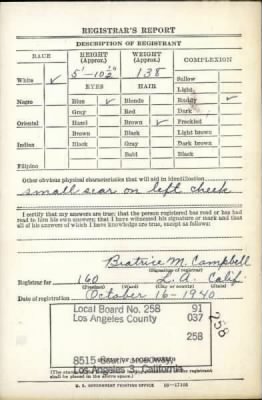 REGISTRAR'S REPORT
DESCRIPTION OF REGISTRANT
RACE HEIGHT (Approx.) WEIGHT (Approx.) COMPLEXION
5'-10½" 138 Sallow
White ✓ EYES HAIR Light
Negro Blue ✓ Blonde Ruddy ✓
Gray Red Dark
Oriental Hazel Brown ✓ Freckled
Brown Black Light brown
Indian Black Gray Dark brown
Bald Black
Filipino
Other obvious physical characteristics that will aid in identification
small scar on left cheek
I certify that my answers are true; that the person registered has read or has had
read to him his own answers; that I have witnessed his signature or mark and that
all of his answers of which I have knowledge are true, except as follows:
Beatrice M. Campbell
(Signature of registrar)
Registrar for 160 L.A. Calif.
(Precinct) (Ward) (City or county) (State)
Date of registration October 16-1940
Local Board No. 258 91
Los Angeles County 037
258
258
8515 Broadway,
Los Angeles 3, California
(The stamp
shall be placed in the above space)
U. S. GOVERNMENT PRINTING OFFICE 16-17105